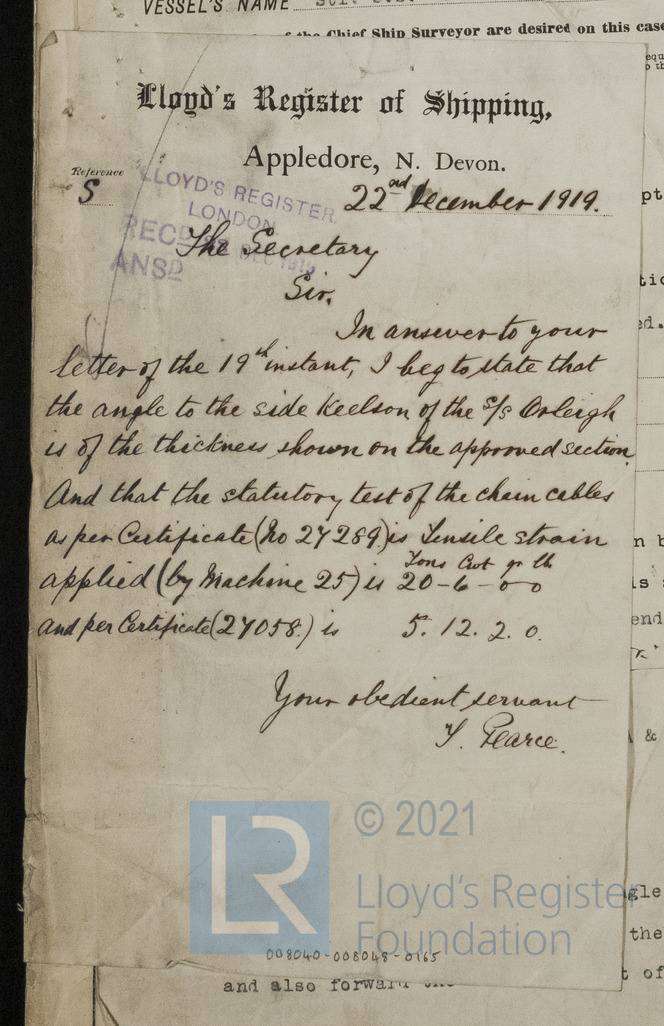 VESSEL'S NAME
the Chief Ship Surveyor are desired on this case
Lloyd's Register of Shipping,
Appledore, N. Devon.
Reference
S
LLOYD'S REGISTER,
LONDON
ANSD
22nd December 1919.
The Secretary
Sir,
In answer to your
letter of the 19th instant, I beg to state that
the angle to the side Keelson of the s/s Orleigh
is of the thickness shown on the approved section.
And that the statutory test of the chain cables
as per Certificate (No 27289) is Tensile strain
Tons Cwt qr lb
applied (by Machine 25) is 20-6-0-0
and per Certificate (27058.) is 5. 12. 2. 0.
Your obedient servant
Pearce.
LR
© 2021
Lloyd's Register
Foundation
008040-008048-0165
and also forward